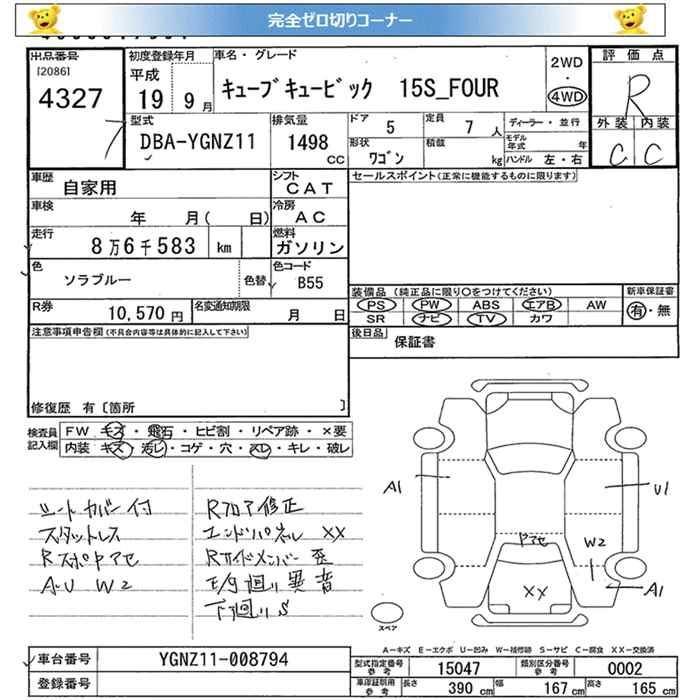 完全ゼロ切りコーナー
出品番号 初度登録年月 車名・グレード 2WD 評価点
[2086]
4327 平成 19 9月 キューブキュービック 15S_FOUR ・ 4WD R
型式 排気量 ドア 5 定員 7人 ディーラー・並行 外装 内装
DBA-YGNZ11 1498 CC 形状 ワゴン 積載 kg モデル年式 年 C C
ハンドル 左・右
車歴 自家用 シフト CAT セールスポイント(正常に機能するものに限ります)
車検 年 月( 日) 冷房 AC
走行 8万6千583 km 燃料 ガソリン
色 ソラブルー 色替 色コード B55
装備品 (純正品に限り○をつけてください) 新車保証書
R券 10,570円 名変通知期限 月 日 PS PW ABS エアB AW 有・無
SR ナビ TV カワ
注意事項申告欄(不具合内容等は具体的に記入して下さい) 後日品 保証書
修復歴 有〔箇所 〕
検査員記入欄 FW キズ・飛石・ヒビ割・リペア跡・×要
内装 キズ・汚レ・コゲ・穴・スレ・キレ・破レ
シートカバー付 Rフロア修正
スタットレス エンドパネル XX
Rスポヤアセ Rサイドメンバー歪
A・U W2 E/g廻り異音
下廻りS
A1 U1
ヤアセ W2
XX A1
スペア
A－キズ E－エクボ U－凹み W－補修跡 S－サビ C－腐食 XX－交換済
車台番号 YGNZ11-008794 型式指定番号 参考 15047 類別区分番号 参考 0002
登録番号 車庫証明用 参考 長さ 390 cm 幅 167 cm 高さ 165 cm